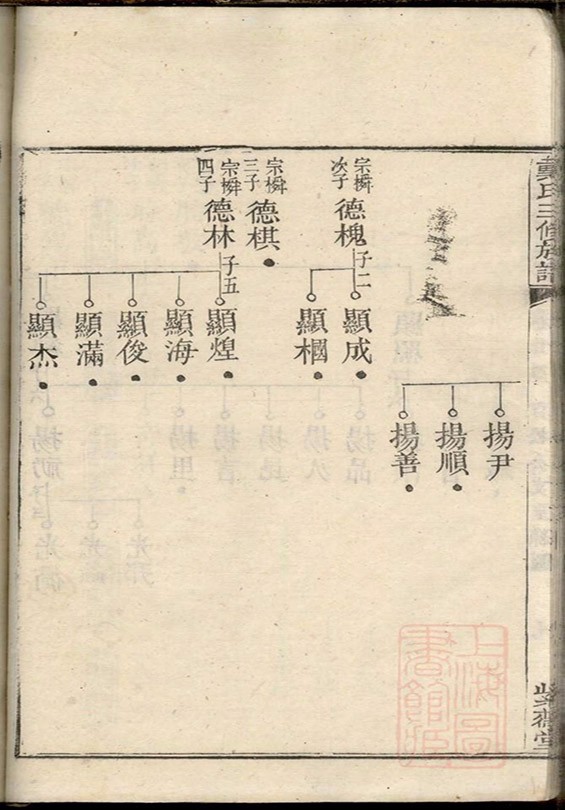 戴氏三修族譜
揚尹
揚順
揚善
宗橓次子
德槐
子二
顯成
顯棝
宗橓三子
德棋
宗橓四子
德林
子五
顯煌
顯海
顯俊
顯滿
顯杰
上海圖書館